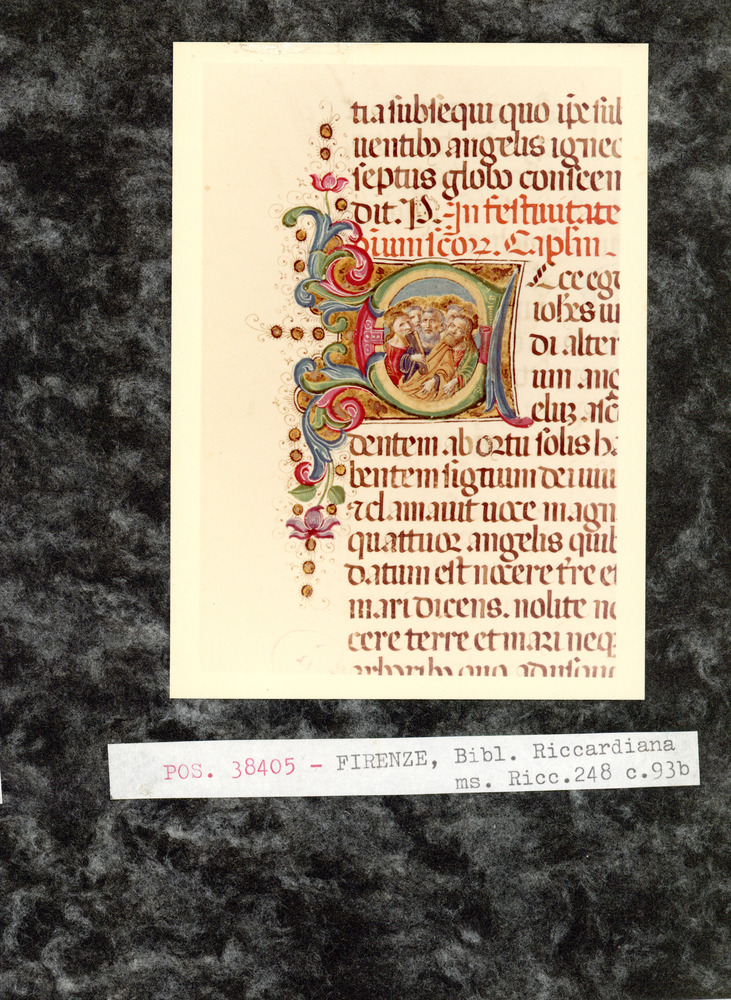 tia subsequi quo ipse sub
uentibꝫ angelis ignee
septus globo conscen
dit. P. In festiuitate
ōium scorꝝ. Caplm.
Ecce ego
iohes ui
di alter
um ang
eluꝫ asc
dentem ab ortu solis ha
bentem signum dei uiui
⁊clamauit uoce magn
quattuor angelis quib
datum est nocere tre et
mari dicens. nolite no
cere terre et mari neqꝫ
arboribꝫ quo adusque
POS. 38405 - FIRENZE, Bibl. Riccardiana
ms. Ricc.248 c.93b